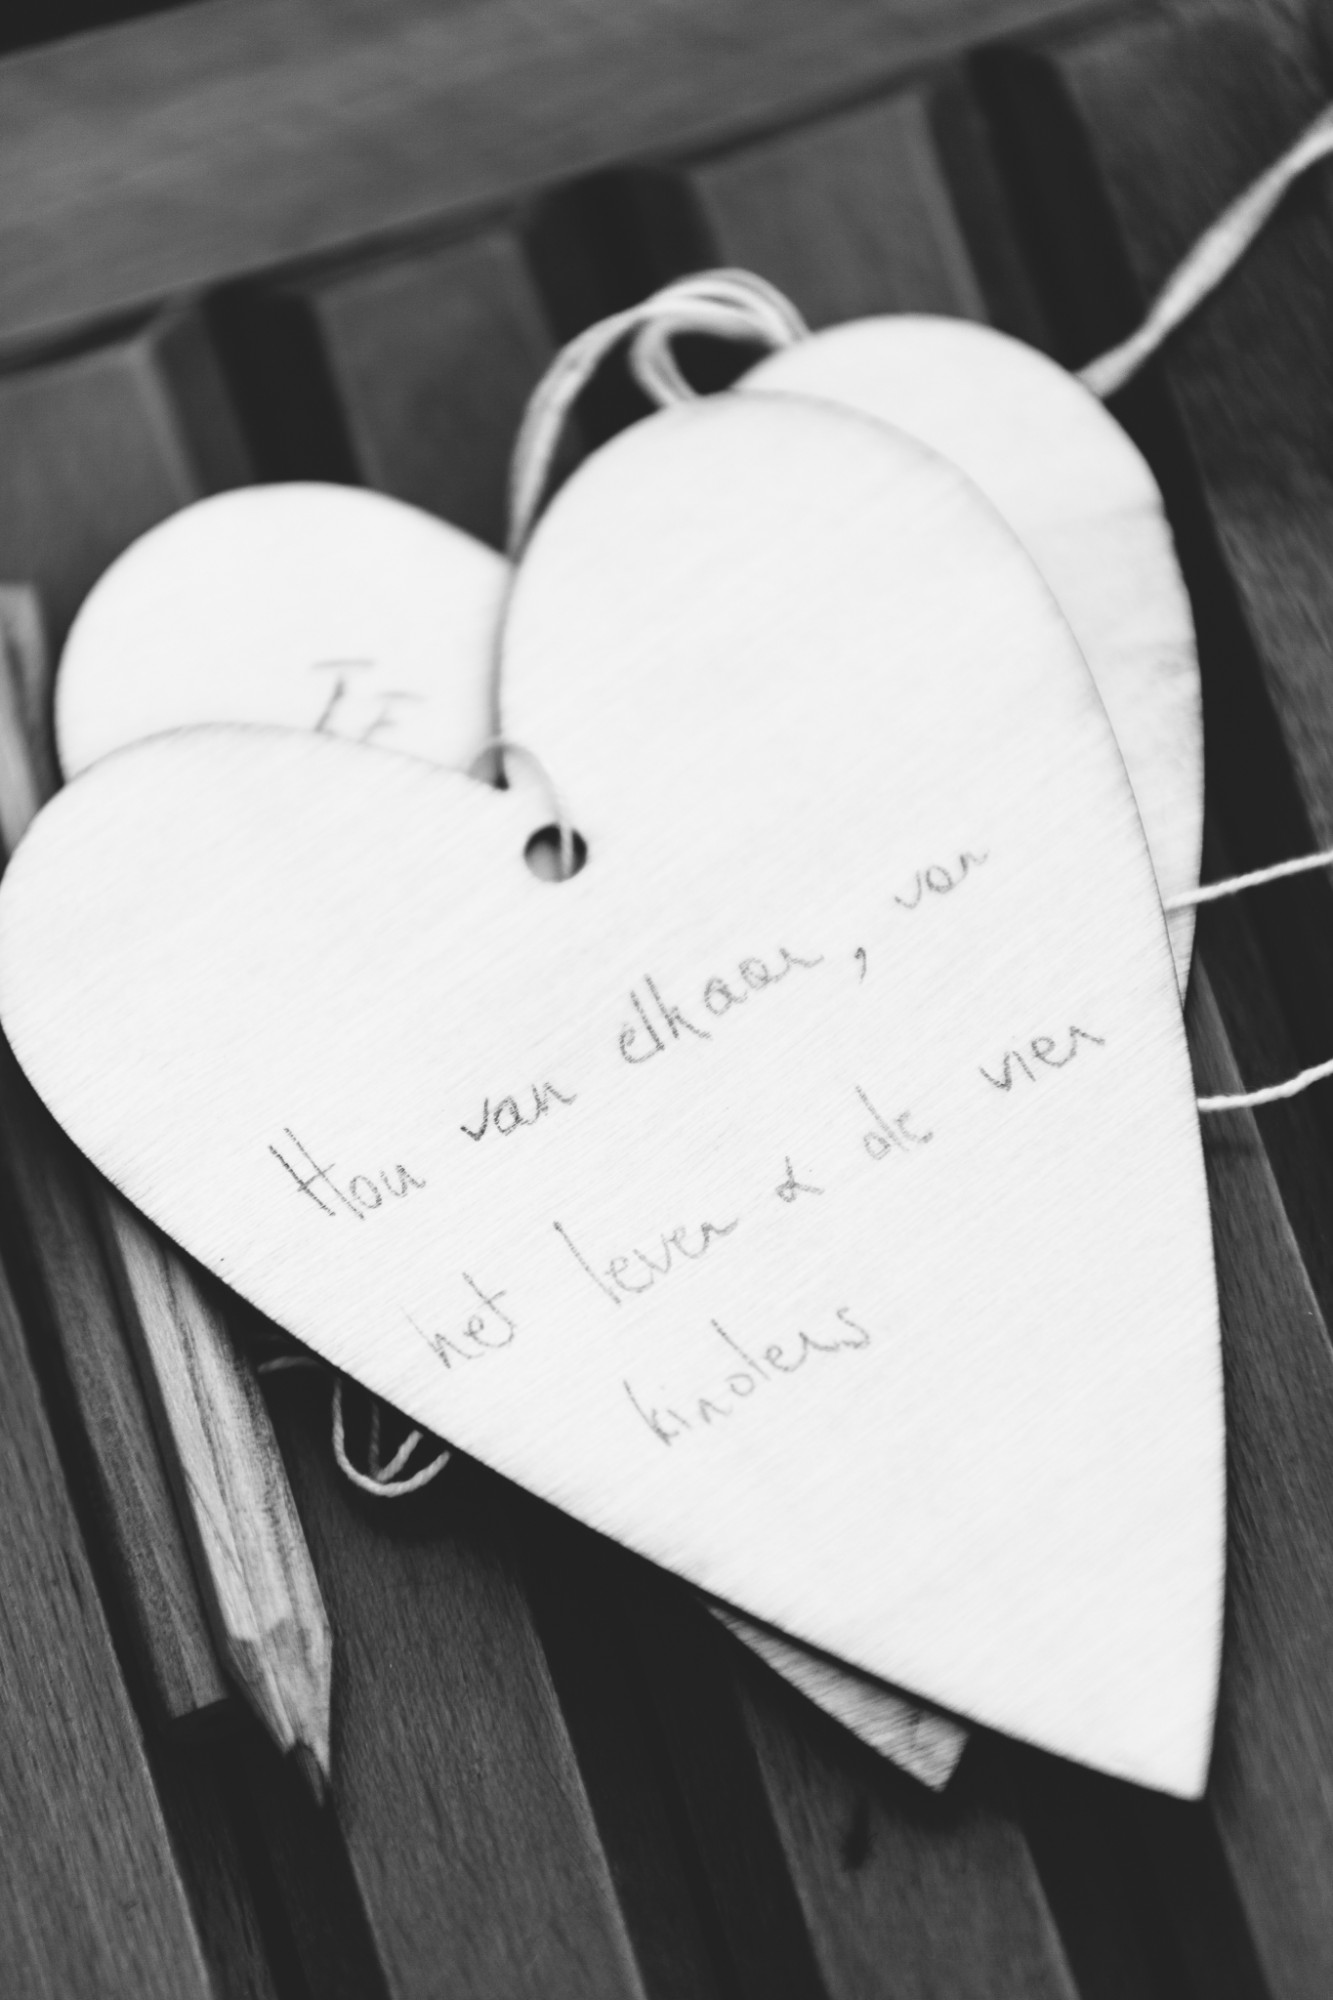 Hou van elkaar, van
het leven & de vier
kinders